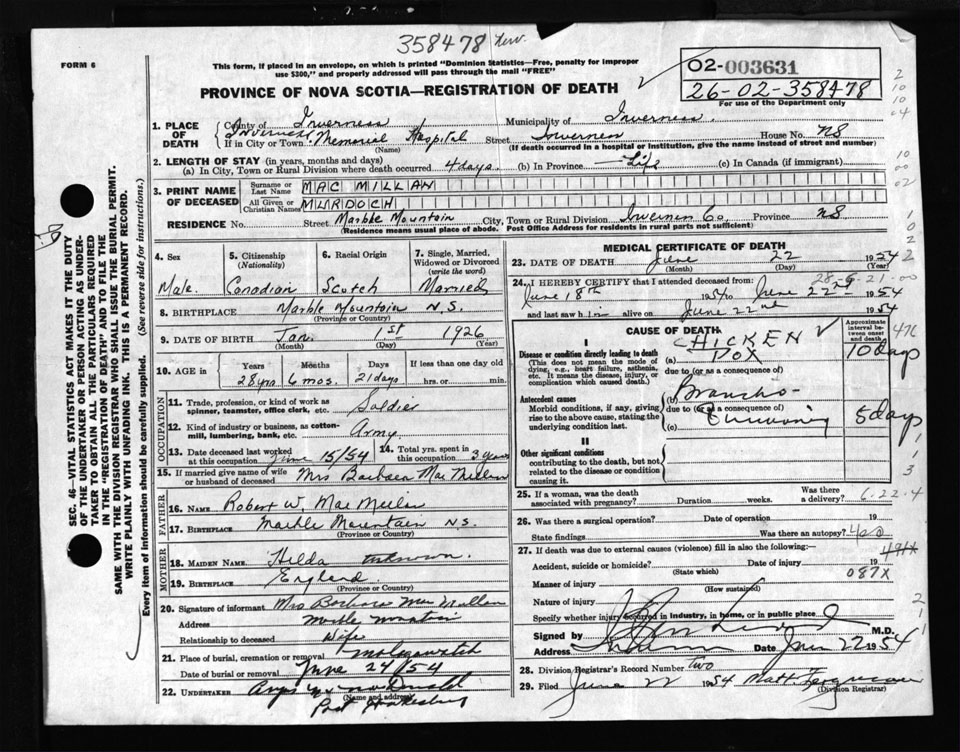 358478
FORM 6
This form, if placed in an envelope, on which is printed "Dominion Statistics—Free, penalty for improper
use $300," and properly addressed will pass through the mail "FREE"
02-003631
26-02-358478
For use of the Department only
PROVINCE OF NOVA SCOTIA—REGISTRATION OF DEATH
1. PLACE OF DEATH
County of Inverness Municipality of Inverness
If in City or Town Inverness Memorial Hospital (Name) Street Inverness House No. NS
(If death occurred in a hospital or institution, give the name instead of street and number)
2. LENGTH OF STAY (in years, months and days)
(a) In City, Town or Rural Division where death occurred 4 days (b) In Province Life (c) In Canada (if immigrant)
3. PRINT NAME OF DECEASED
Surname or Last Name MAC MILLAN
All Given or Christian Names MURDOCH
RESIDENCE No. Street Marble Mountain City, Town or Rural Division Inverness Co. Province NS
(Residence means usual place of abode. Post Office Address for residents in rural parts not sufficient)
4. Sex
Male
5. Citizenship (Nationality)
Canadian
6. Racial Origin
Scotch
7. Single, Married, Widowed or Divorced (write the word)
Married
8. BIRTHPLACE Marble Mountain N.S.
(Province or Country)
9. DATE OF BIRTH Jan. 1st 1926
(Month) (Day) (Year)
10. AGE in Years Months Days If less than one day
28 yrs 6 mos. 21 days hrs. or min.
OCCUPATION
11. Trade, profession, or kind of work as spinner, teamster, office clerk, etc. Soldier
12. Kind of industry or business, as cotton-mill, lumbering, bank, etc. Army
13. Date deceased last worked at this occupation June 15/54
14. Total yrs. spent in this occupation 3 years
15. If married give name of wife or husband of deceased Mrs Barbara Mac Millan
FATHER
16. NAME Robert W. Mac
17. BIRTHPLACE Marble Mountain N.S.
(Province or Country)
MOTHER
18. MAIDEN NAME Hilda unknown
19. BIRTHPLACE England
(Province or Country)
20. Signature of informant Mrs Barbara Mac Millan
Address Marble Mountain
Relationship to deceased Wife
21. Place of burial, cremation or removal Malagawatch
Date of burial or removal June 24/54
22. UNDERTAKER
(Name and address)
Port Hawkesbury
MEDICAL CERTIFICATE OF DEATH
23. DATE OF DEATH June 22 1954
(Month) (Day) (Year)
24. I HEREBY CERTIFY that I attended deceased from:
June 18th 1954 to June 22nd 1954
and last saw him alive on June 22nd 1954
CAUSE OF DEATH
Approximate interval between onset and death
I
Disease or condition directly leading to death
(This does not mean the mode of dying, e.g., heart failure, asthenia, etc. It means the disease, injury, or complication which caused death.)
(a) CHICKEN POX 10 days
due to (or as a consequence of)
Antecedent causes
Morbid conditions, if any, giving rise to the above cause, stating the underlying condition last.
(b) Broncho-
due to (or as a consequence of)
(c) 5 days
II
Other significant conditions
contributing to the death, but not related to the disease or condition causing it.
25. If a woman, was the death associated with pregnancy? Duration weeks. Was there a delivery?
6-22-4
26. Was there a surgical operation? Date of operation 19
State findings Was there an autopsy?
27. If death was due to external causes (violence) fill in also the following:—
Accident, suicide or homicide? (State which) Date of injury 19
087X
Manner of injury
(How sustained)
Nature of injury
Specify whether injury occurred in industry, in home, or in public place
Signed by M.D.
Address Date June 22 1954
28. Division Registrar's Record Number two
29. Filed June 22 1954 Matt Ferguson
(Division Registrar)
SEC. 46—VITAL STATISTICS ACT MAKES IT THE DUTY
OF THE UNDERTAKER OR PERSON ACTING AS UNDER-
TAKER TO OBTAIN ALL THE PARTICULARS REQUIRED
IN THE "REGISTRATION OF DEATH" AND TO FILE THE
SAME WITH THE DIVISION REGISTRAR WHO SHALL ISSUE THE BURIAL PERMIT.
WRITE PLAINLY WITH UNFADING INK. THIS IS A PERMANENT RECORD.
Every item of information should be carefully supplied. (See reverse side for instructions.)